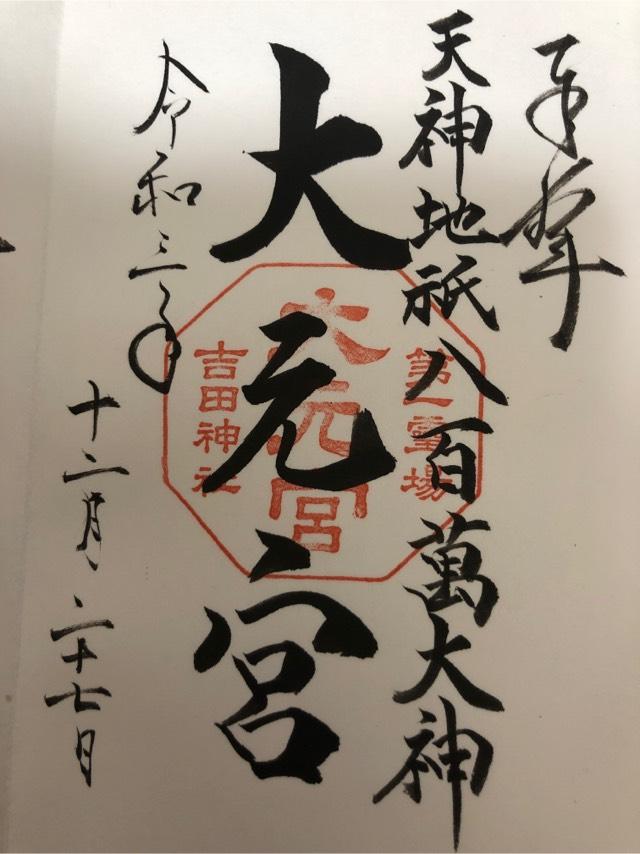 奉拝
天神地祇八百萬大神
第一霊場
大元宮
大元宮
吉田神社
令和三年
十二月二十七日